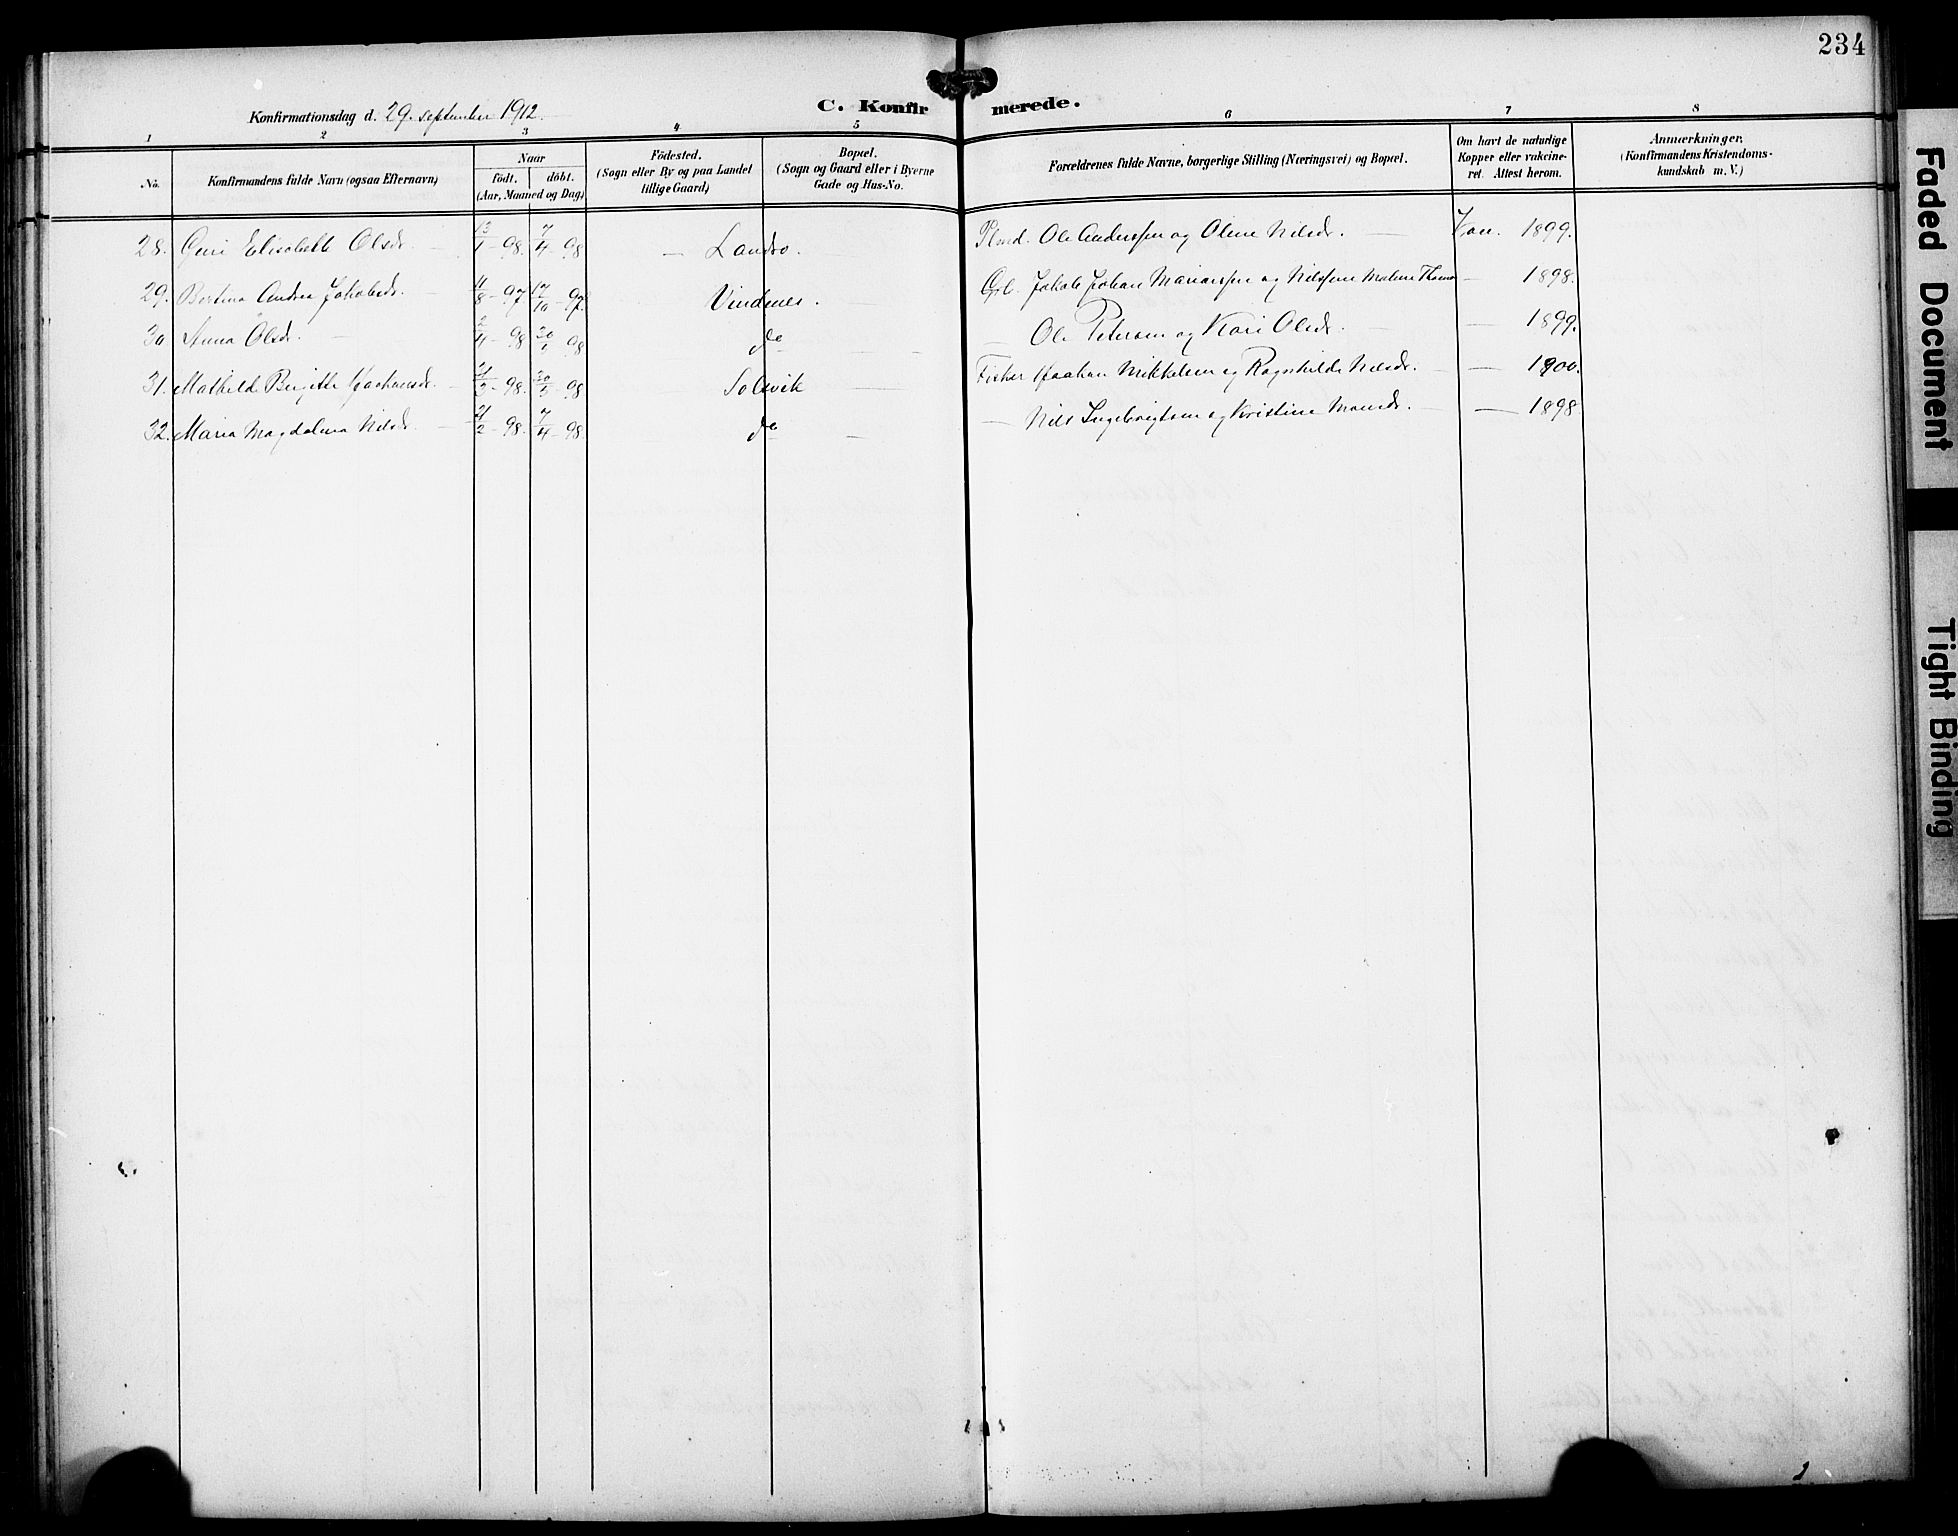 234
Konfirmationsdag d. 29. september 1912.
C. Konfirmerede.
1 2 3 4 5 6 7 8
No.
Konfirmandens fulde Navn (ogsaa Efternavn)
Naar
födt. döbt.
(Aar, Maaned og Dag)
Födested.
(Sogn eller By og paa Landet
tillige Gaard)
Bopæl.
(Sogn og Gaard eller i Byerne
Gade og Hus-No.
Forældrenes fulde Navne, borgerlige Stilling (Næringsvei) og Bopæl.
Om havt de naturlige
Kopper eller vakcine-
ret. Attest herom.
Anmærkninger,
(Konfirmandens Kristendoms-
kundskab m. V.)
28. Guri Elisabeth Olsdr. 13/1 - 98. 7/4 - 98 — Landrø. Plmd. Ole Anderssen og Oline Nilsdr. — Vac. 1899.
29. Bertina Andrea Jakobsdr. 11/8 - 97 17/10 - 97. Vindenes. — Gbr. Jakob Johan Mariussen og Nilsine Malene Thomas — 1898.
30 Anna Olsdr. — 2/4 - 98 98 do — — Ole Petersen og Kari Olsdr. — — 1899.
31. Mathilde Birgitte Haakonsdr. 21/3 - 98. 98 Solsvik — Fisker Haakon Mikkelsen og Ragnhilde Nilsdr. — — 1900.
32. Maria Magdalena Nilsdr. — 21/2 - 98. 7/4 - 98 do — — Nils Ingebrigtsen og Kristine Monsdr. — — 1898
Faded Document
Tight Binding